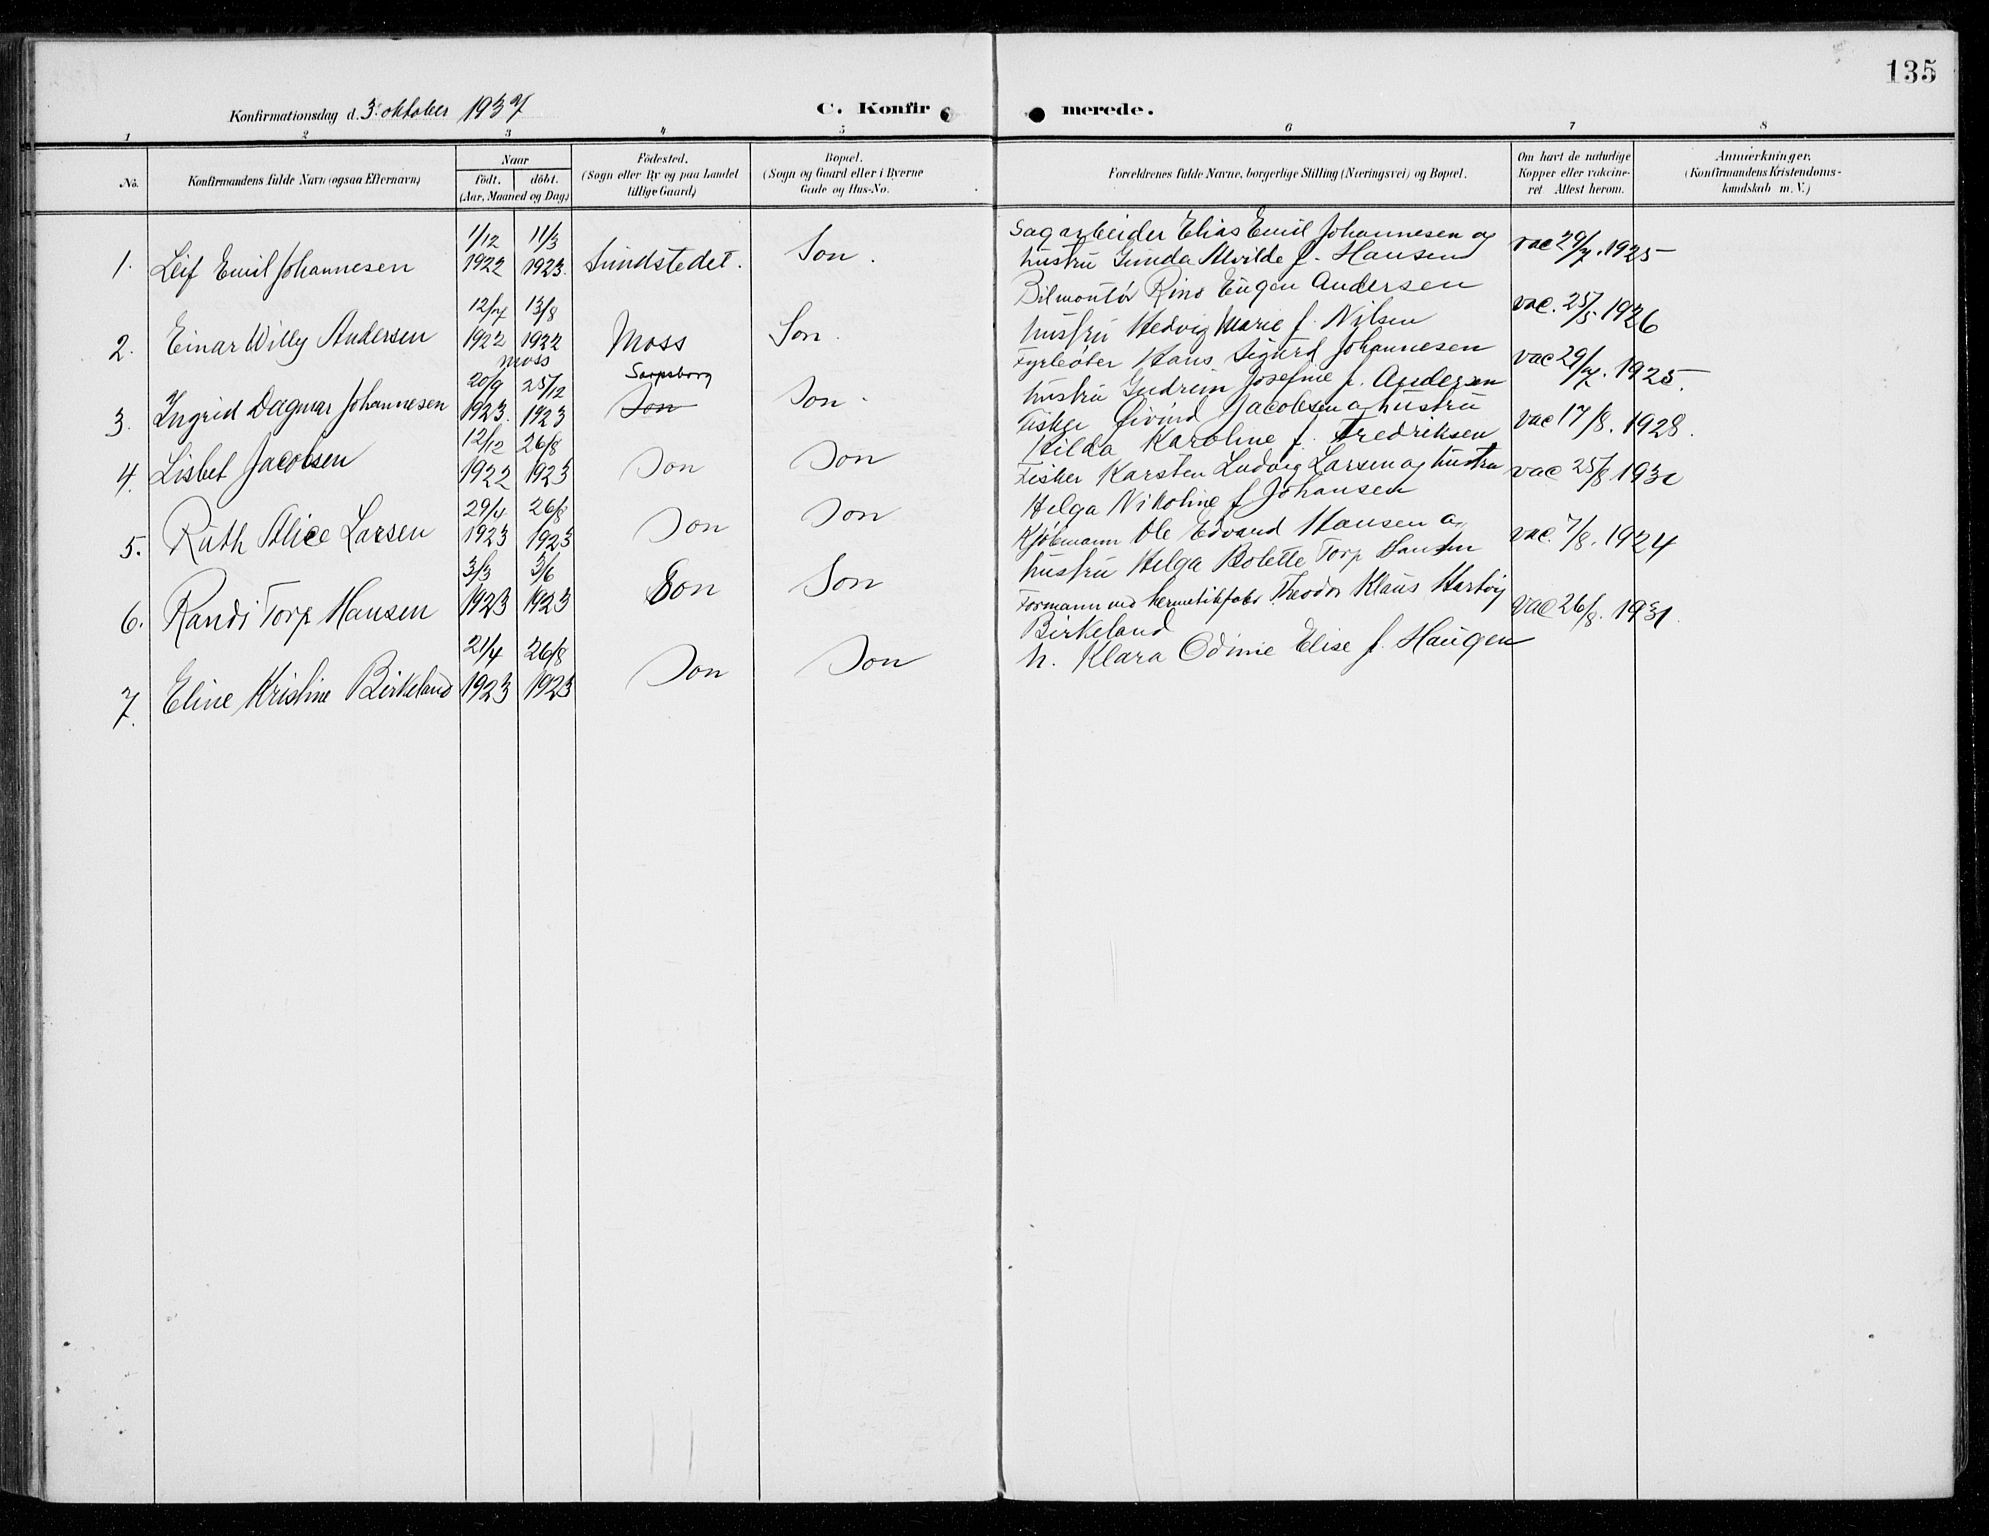 135
Konfirmationsdag d. 3. oktober 1937
C. Konfir merede.
1 2 3 4 5 6 7 8
No.
Konfirmandens fulde Navn (ogsaa Efternavn)
Naar
födt. döbt.
(Aar, Maaned og Dag)
Födested.
(Sogn eller By og paa Landet
tillige Gaard)
Bopæl.
(Sogn og Gaard eller i Byerne
Gade og Hus-No.
Forældrenes fulde Navne, borgerlige Stilling (Næringsvei) og Bopæl.
Om havt de naturlige
Kopper eller vakcine-
ret Attest herom.
Anmærkninger.
(Konfirmandens Kristendoms-
kundskab m. V.)
1. Leif Emil Johannesen
1/12 1922
11/3 1923.
Sundstedet.
Son.
Sagarbeider Elias Emil Johannesen og
hustru Gunda Alvilde f. Hansen
vac 29/7. 1925
2. Einar Willy Andersen
12/7 1922
13/8 1922
Moss
Moss
Son.
Bilmontør Rino Eugen Andersen
hustru Hedvig Marie f. Nilsen
vac. 25/5 1926
3. Ingrid Dagmar Johannesen
20/9 1923.
25/12 1923
Sarpsborg
Son
Son.
Fyrbøter Hans Sigurd Johannesen
hustru Gudrun Josefine f. Andersen
vac 29/7. 1925.
4. Lisbet Jacobsen
12/12 1922
26/8 1923
Son
Son
Fisker Øivind Jacobsen og hustru
Hilda Karoline f. Fredriksen
vac 17/8. 1928.
5. Ruth Alice Larsen
29/4 1923
26/8 1923
Son
Son
Fisker Karsten Ludvig Larsen og hustru
Helga Nikoline f Johansen
vac 25/8 1930
6. Randi Torp Hansen
3/3 1923
3/6 1923
Son
Son
Kjøbmann Ole Edvard Hansen og
hustru Helga Bolette Torp Hansen
vac. 7/8. 1924
7. Eline Kristine Birkeland
21/4 1923
26/8 1923
Son
Son
Formann ved hermetikfabr Theodor Klaus Hartvig
Birkeland
h. Klara Odinie Elise f. Haugen
vac 26/8. 1931.